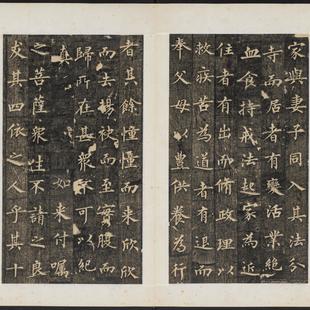 家與妻子同入其法分
寺而居者有變活業絕
血食持戒法起家為近
住者有出而脩政理以
救疾苦為道者有退而
奉父母以豊供養為行
者其餘憧憧而来欣欣
而去揚袂而至實腹而
歸所在甚衆不可以紀
真 如来付嘱
之菩薩衆生不請之良
友其四依之人乎其十